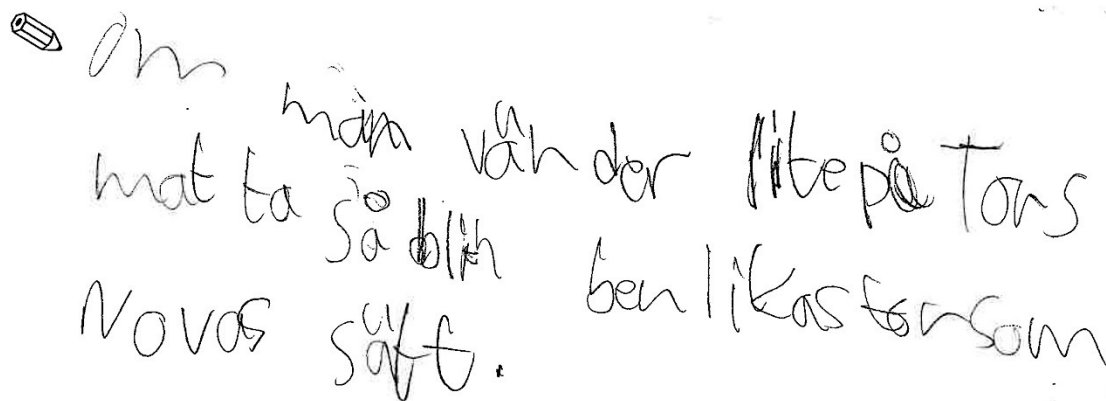 Om man vänder lite på Tons
matta så blir ben lika stor som
Novas säft.